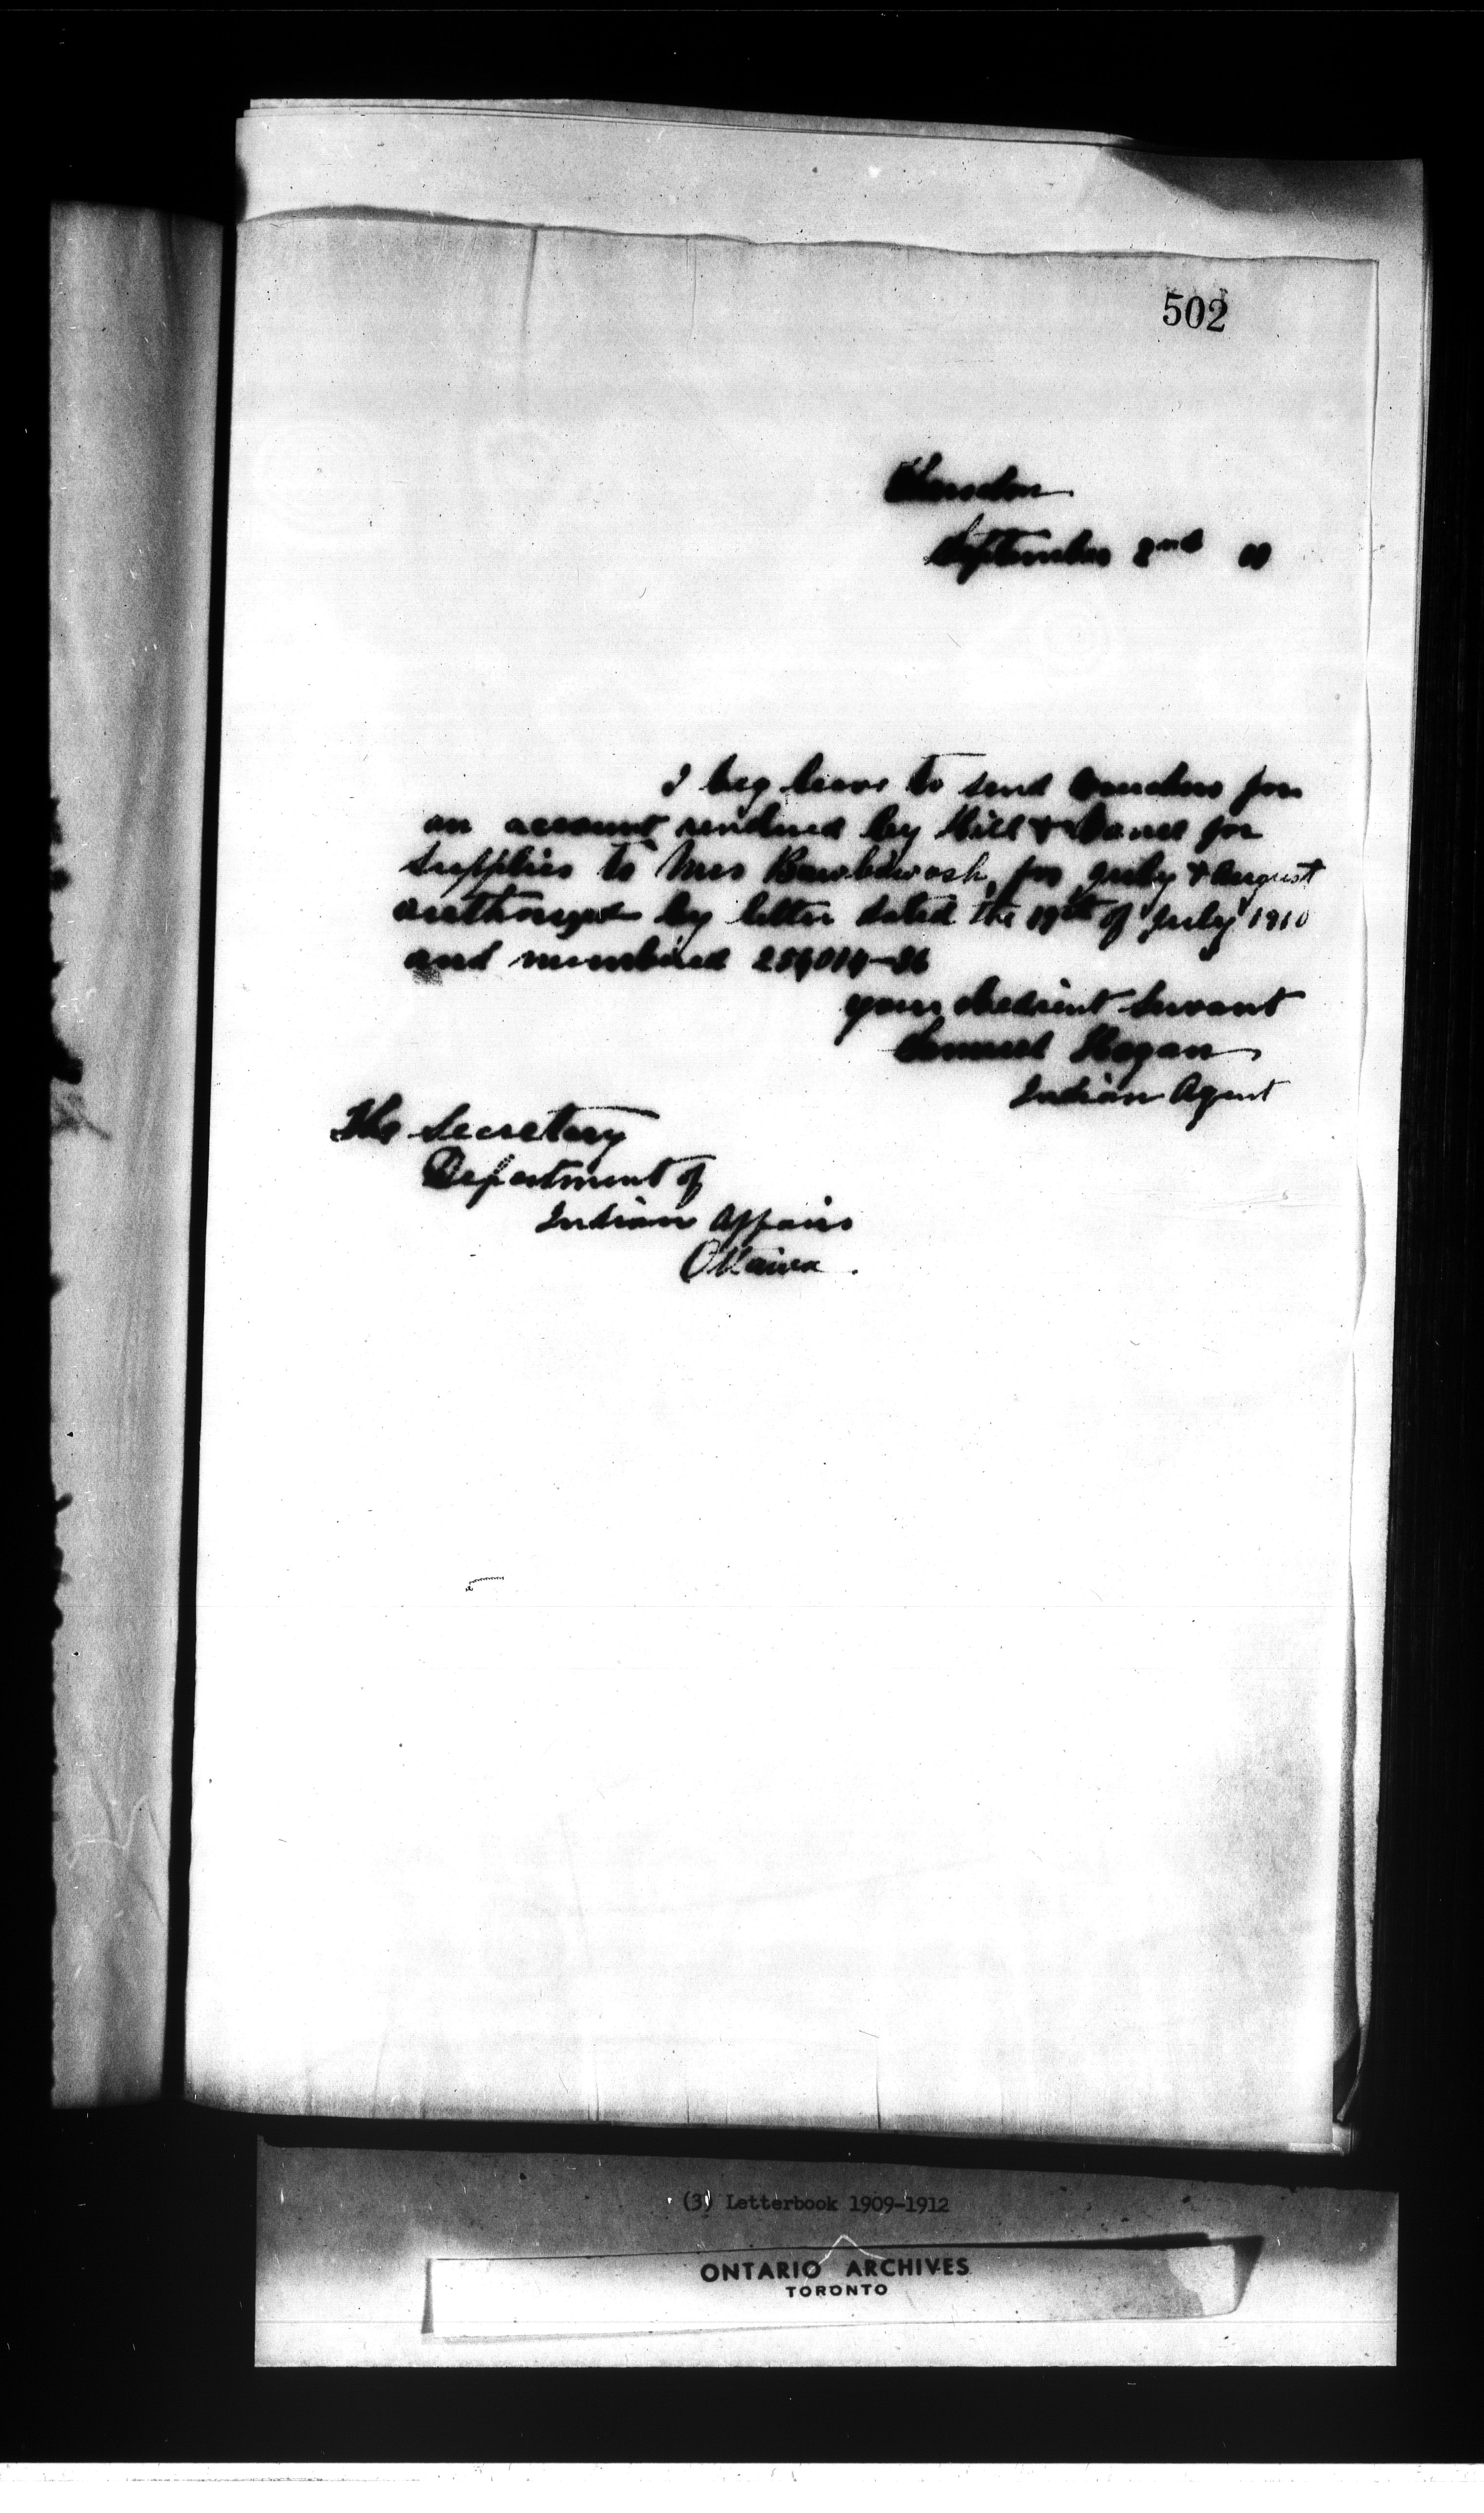 502
Thessalon
September 2nd 10
I beg leave to send vouchers for
an account rendered by Hill & for
supplies to Mrs Bawbewash, for July & August
authorized by letter dated the 19th of July 1910
and numbered
your obedient Servant
Samuel Hagan
Indian Agent
The Secretary
Department of
Indian Affairs
Ottawa.
(3) Letterbook 1909-1912
ONTARIO ARCHIVES
TORONTO